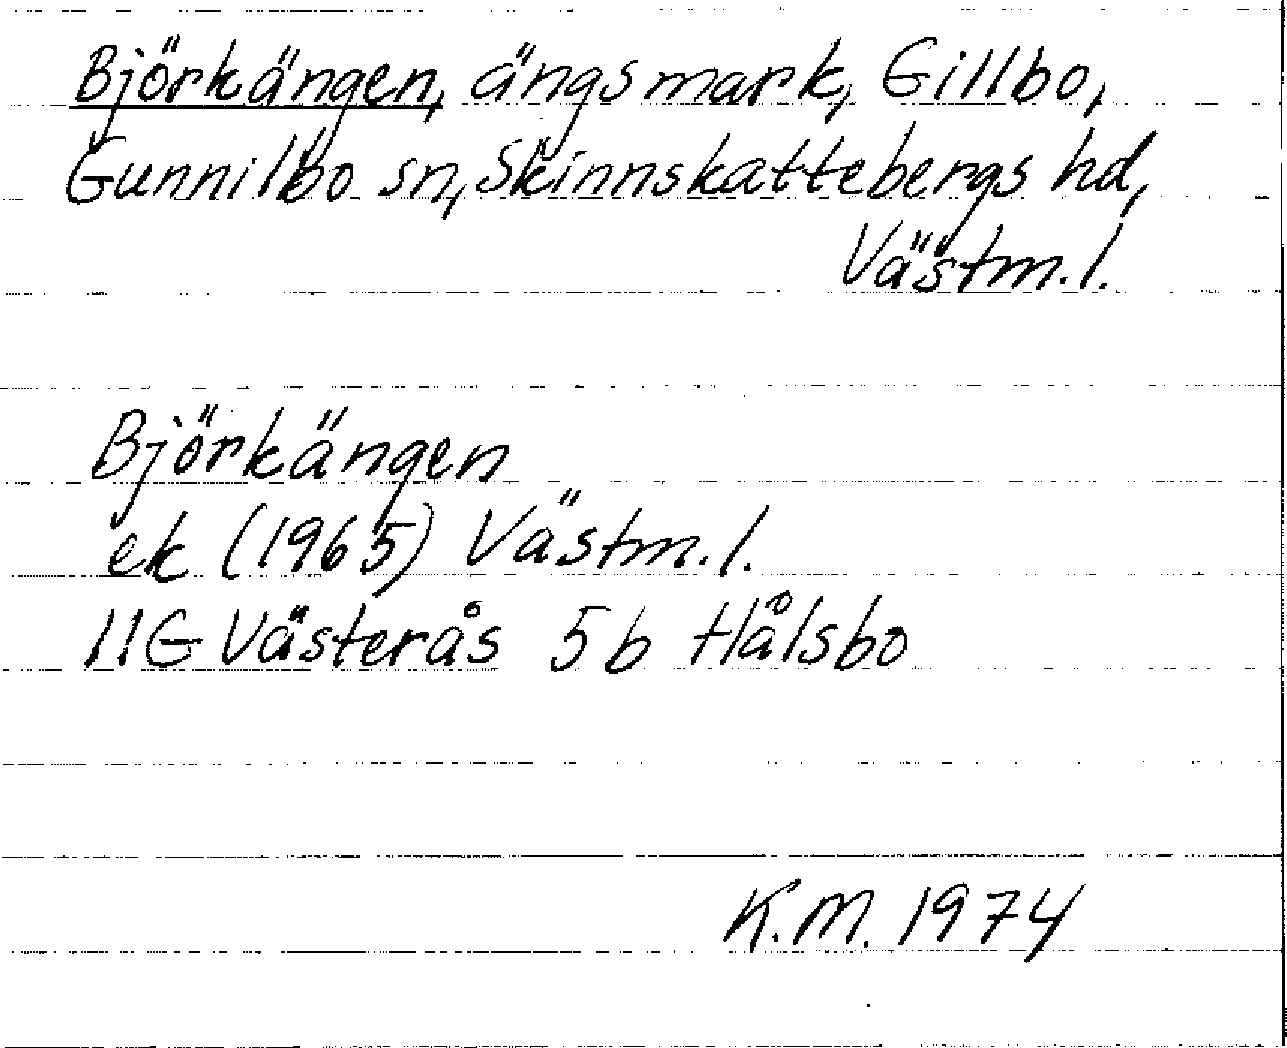 Björkängen, ängsmark, Gillbo,
Gunnilbo sn, Skinnskattebergs hd,
Västm.l.
Björkängen
ek (1965) Västm.l.
11G Västerås 5b Hålsbo
K.M. 1974